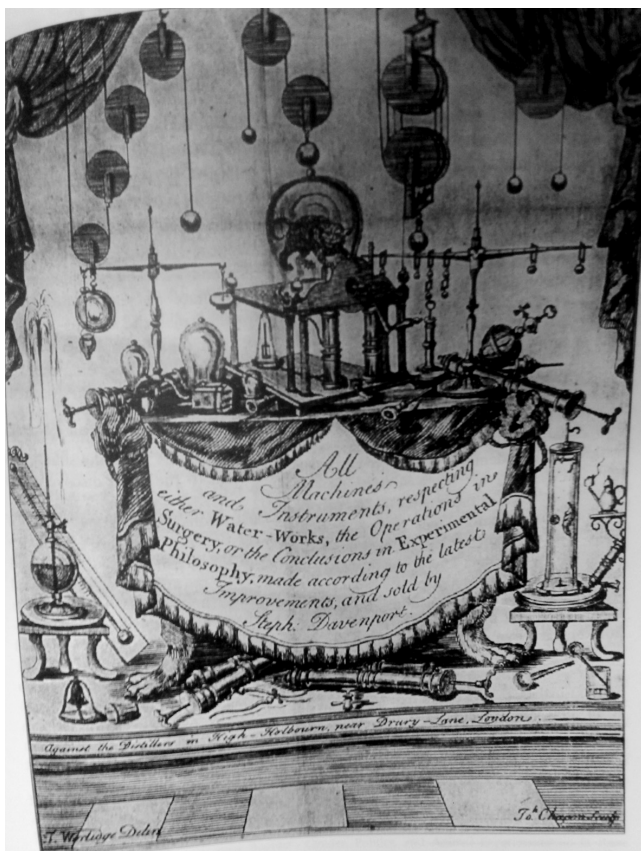 All
Machines
and Instruments, respecting
either Water-Works, the Operations in
Surgery, or the Conclusions in Experimental
Philosophy, made according to the latest
Improvements, and sold by
Steph. Davenport.
Against the Distillers in High-Holbourn, near Drury-Lane, London.
T. Worlidge Delin
Jo.h Chapman Sculp